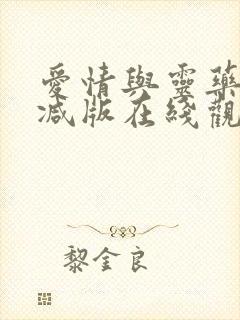 愛情與靈藥
減版在綫觀
黎金良